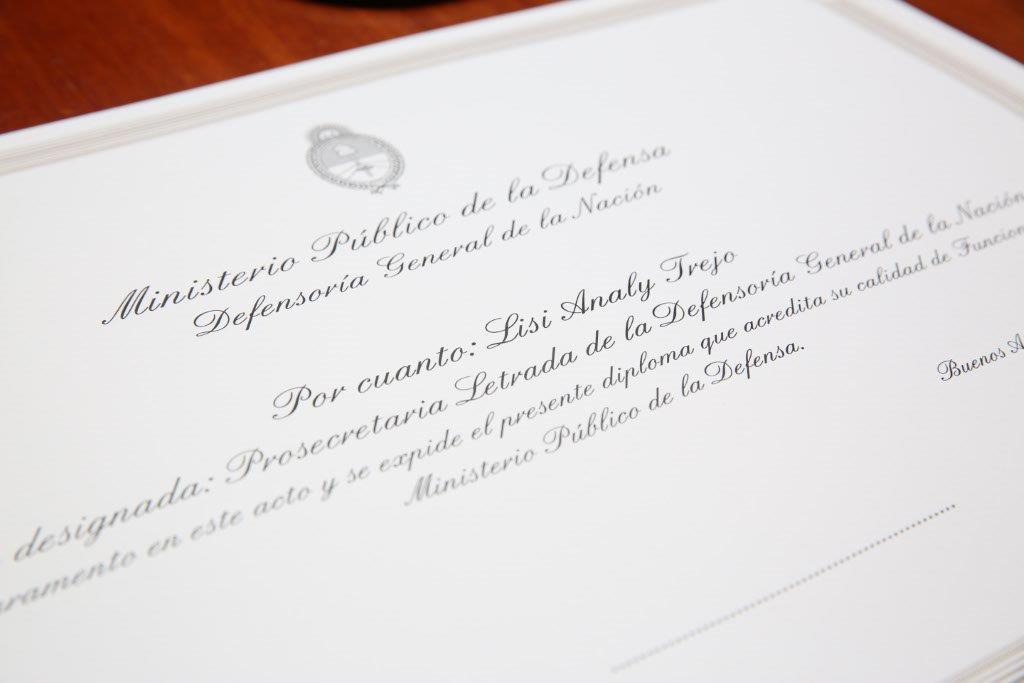 Ministerio Público de la Defensa
Defensoría General de la Nación
Por cuanto: Lisi Analy Trejo
designada: Prosecretaria Letrada de la Defensoría General de la Nación
en este acto y se expide el presente diploma que acredita su calidad de
Ministerio Público de la Defensa.
Buenos